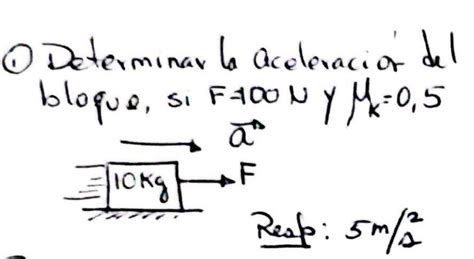 ① Determinar la aceleración del
bloque, si F=100 N y μk=0,5
a
10Kg
F
Resp: 5m/s²